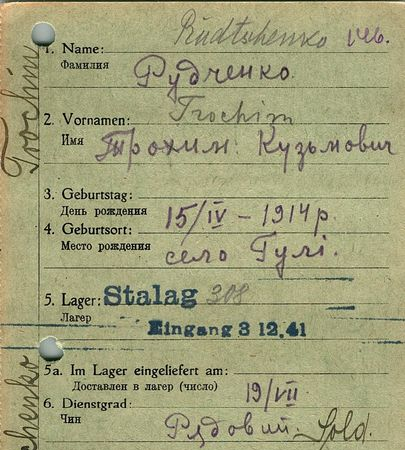 Rudtschenko 146.
1. Name:
Фамилия
Рудченко
2. Vornamen: Trochim
Имя
Трохим Кузьмович
3. Geburtstag:
День рождения
15/IV - 1914 р.
4. Geburtsort:
Место рождения
село Гулі.
5. Lager: Stalag 308
Лагер
Eingang 3 12.41
5a. Im Lager eingeliefert am:
Доставлен в лагер (число)
19/VII
6. Dienstgrad:
Чин
Рядовий. Sold.
Trochim
chenko